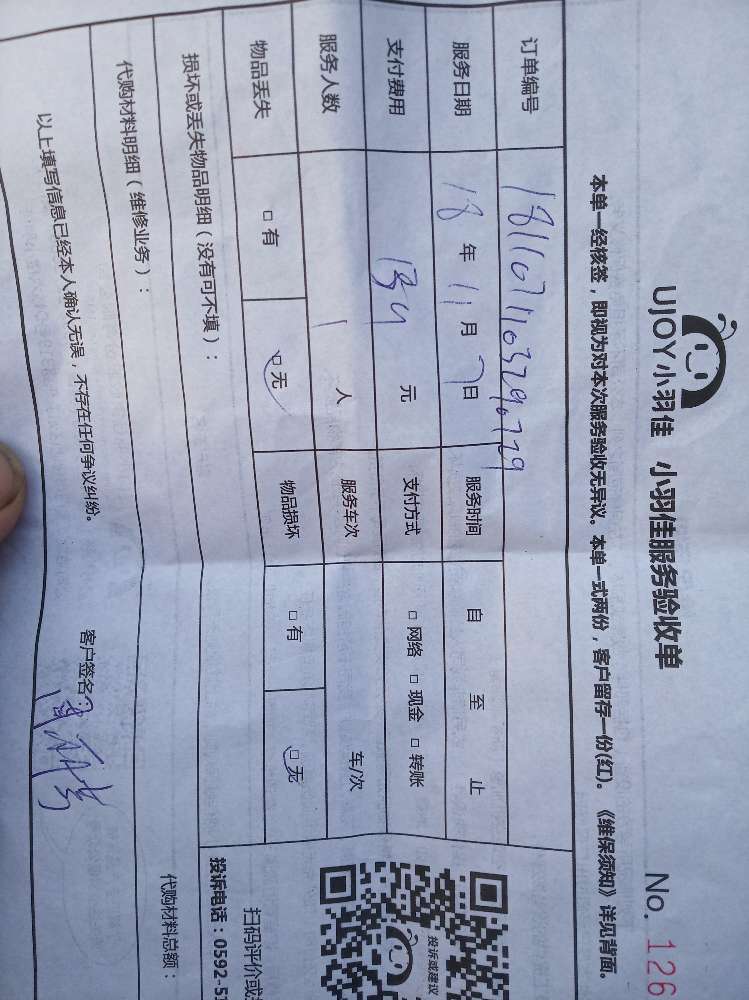 UJOY小羽佳 小羽佳服务验收单
No. 126
本单一经核签，即视为对本次服务验收无异议。本单一式两份，客户留存一份(红)。《维保须知》详见背面。
订单编号
服务日期 18 年 11 月 7 日 服务时间 自 至 止
支付费用 元 支付方式 □ 网络 □ 现金 □ 转账
服务人数 1 人 服务车次 车/次
物品丢失 □ 有 □ 无 物品损坏 □ 有 □ 无
损坏或丢失物品明细（没有可不填）：
代购材料明细（维修业务）：
代购材料总额：
以上填写信息已经本人确认无误，不存在任何争议纠纷。 客户签名：
投诉或建议
扫码评价或
投诉电话：0592-51